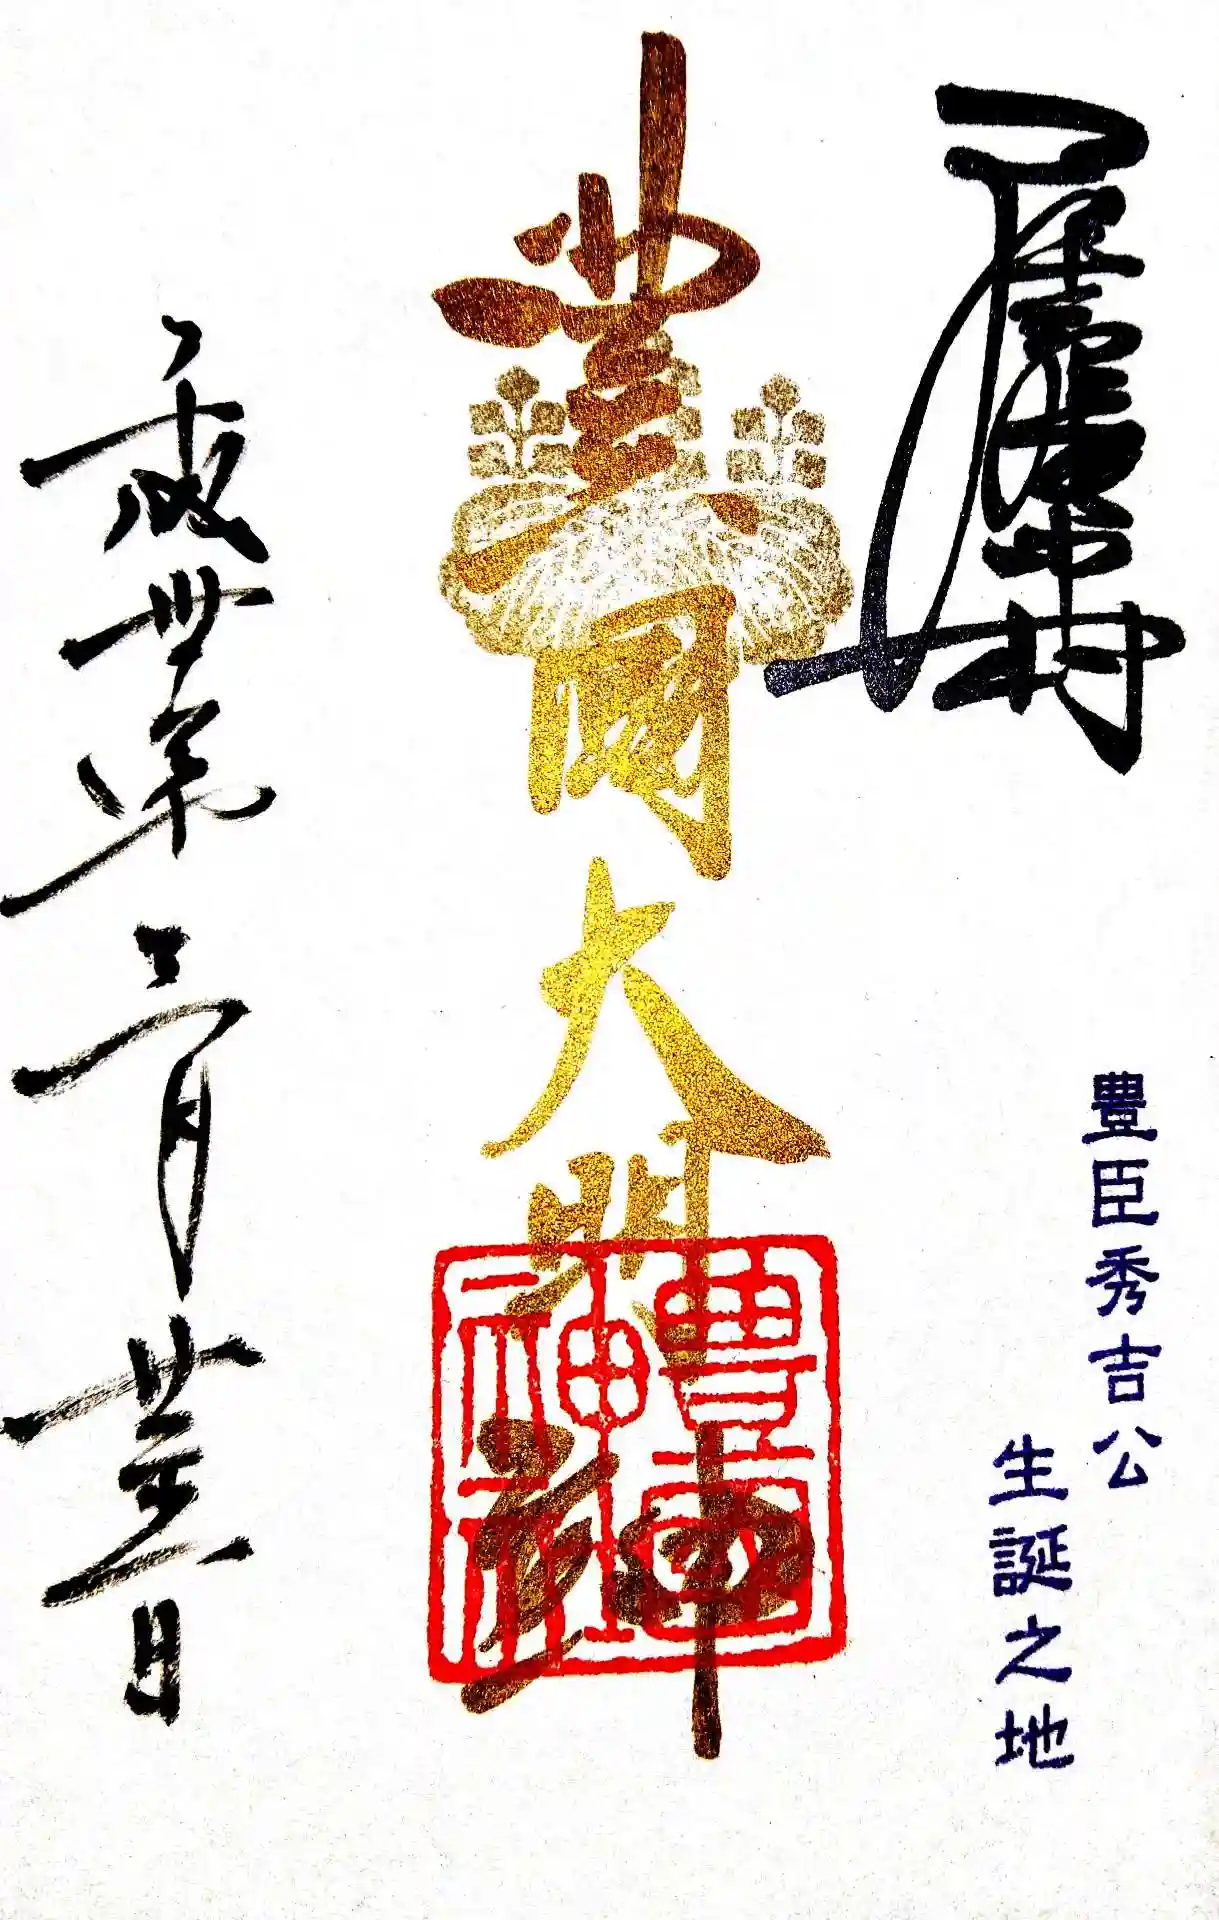 豊臣秀吉公
生誕之地
豊國大明神
豊國神社
平成卅年三月廿五日